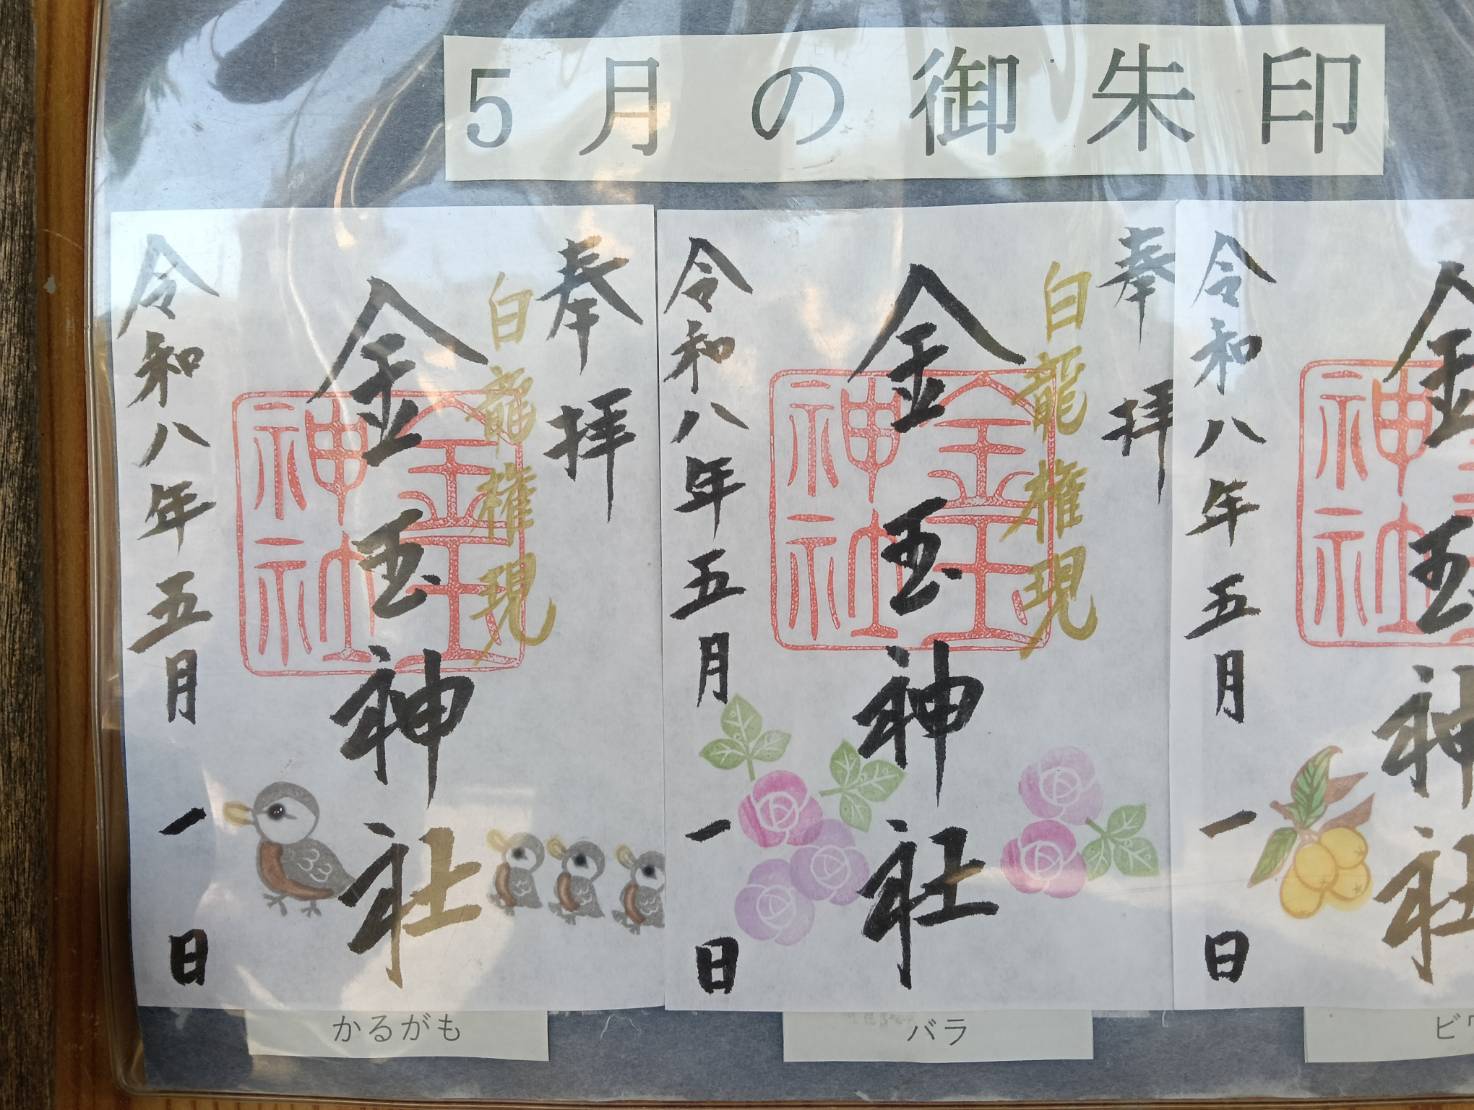 5月の御朱印
奉拝
白龍権現
金玉神社
金玉神社
令和八年五月一日
かるがも
奉拝
白龍権現
金玉神社
金玉神社
令和八年五月一日
バラ
金玉神社
令和八年五月一日
ビワ